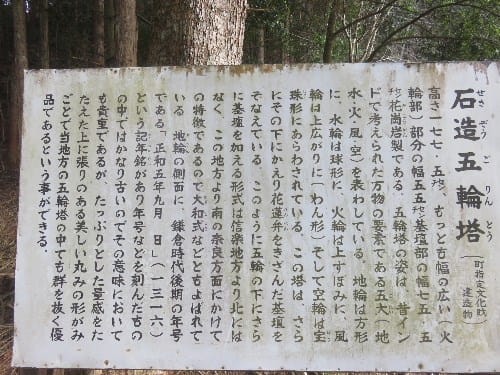 せきぞうごりんとう
石造五輪塔
(町指定文化財 建造物)
高さ一七七・五㌢、もっとも幅の広い(火
輪部)部分の幅五五㌢基壇部の幅七五・五
㌢花崗岩製である。五輪塔の姿は、昔イン
ドで考えられた万物の要素である五大(地
水・火・風・空)を表わしている。地輪は方形
に、水輪は球形に、火輪は上すぼみに、風
輪は上広がりに(わん形)そして空輪は宝
珠形にあらわされている。この塔は、さら
にその下にかえり花蓮弁をきざんだ基壇を
そなえている。このように五輪の下にさら
に基壇を加える形式は信楽地方より北には
なく、この地方より南の奈良方面にかけて
の特徴であるので大和式などともよばれて
いる。地輪の側面に、鎌倉時代後期の年号
である、正和五年九月 日」(一三一六)
という記年銘があり年号などを刻んだもの
の中ではかなり古いのでその意味において
も貴重であるが、たっぷりとした量感をた
たえた上に張りのある美しい丸みの形がみ
ごとで当地方の五輪塔の中でも群を抜く優
品であるという事ができる。